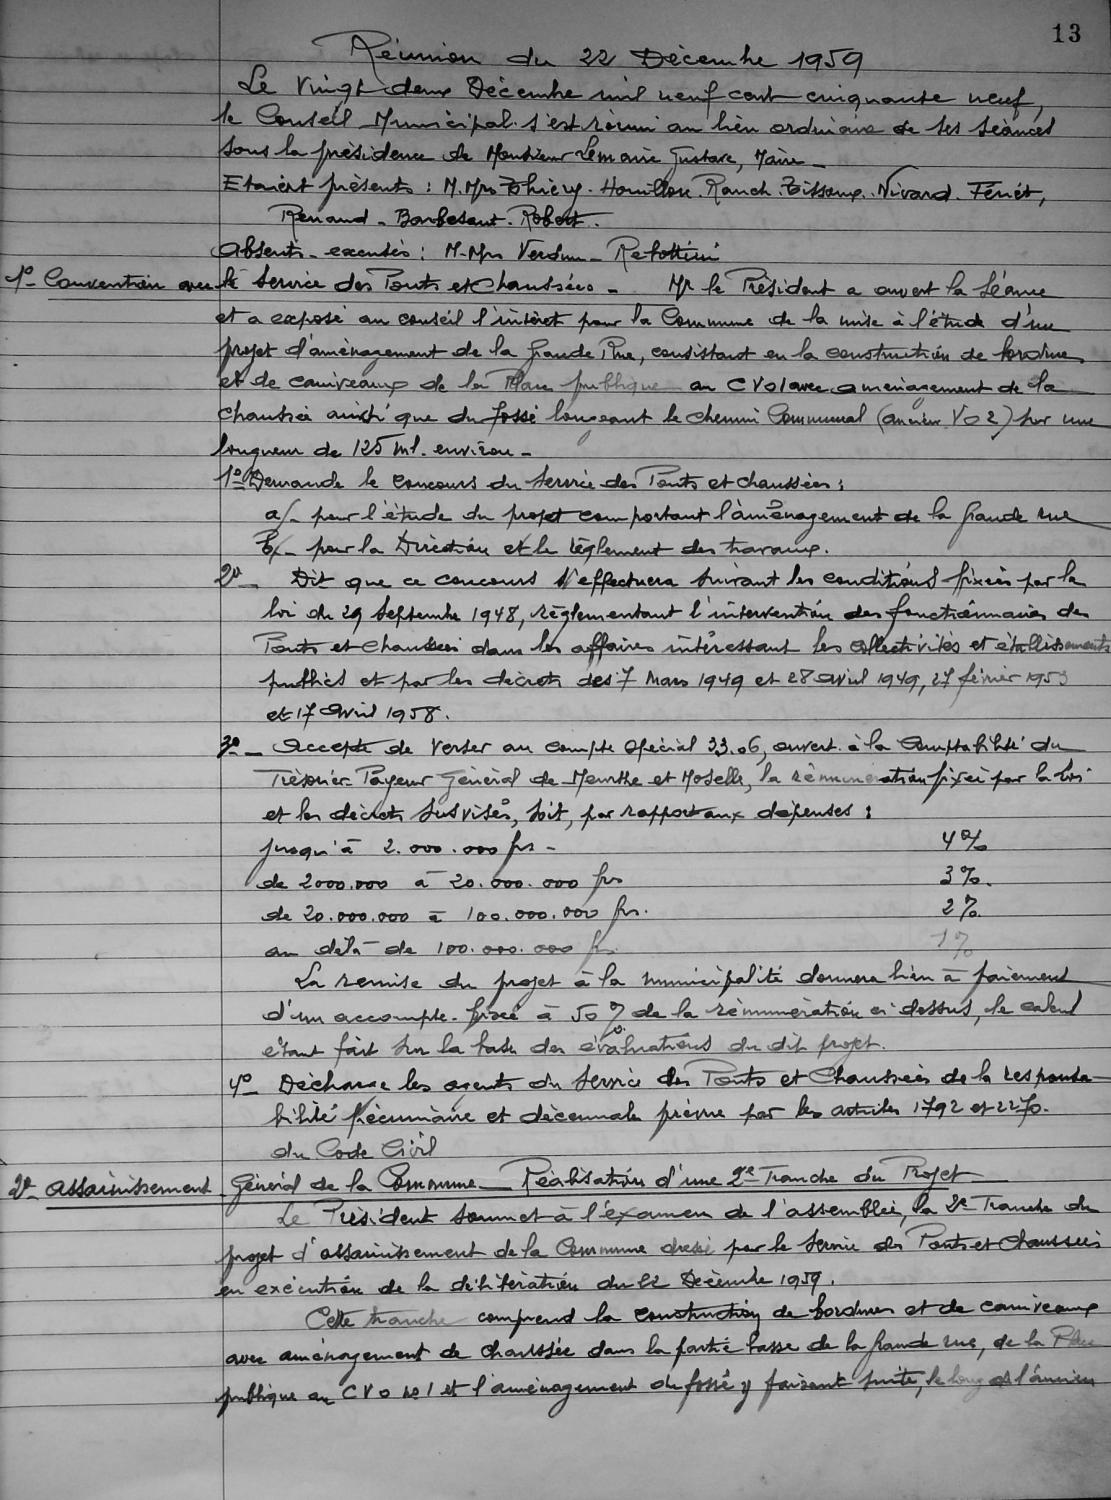 13
Réunion du 22 Décembre 1959
Le Vingt deux Décembre mil neuf cent cinquante neuf,
le Conseil Municipal s'est réuni au lieu ordinaire de ses séances
sous la présidence de Monsieur Lemaire Gustave, Maire -
Etaient présents : M.Mrs Thiéry - Houillon. Rauch. Tissoux. Nivard. Fériet,
Renaud - Barbesant - Robert.
Absents - excusés : M.Mrs Verdun - Rebottini
1° Convention avec le Service des Ponts et Chaussées - Mr le Président a ouvert la Séance
et a exposé au conseil l'intérêt pour la Commune de la mise à l'étude d'un
projet d'aménagement de la Grande Rue, consistant en la construction de bordures
et de caniveaux de la Place publique au CVO1 avec aménagement de la
chaussée ainsi que du fossé longeant le chemin Communal (ancien VO2) sur une
longueur de 125 ml. environ -
1° Demande le concours du Service des Ponts et Chaussées :
a/- pour l'étude du projet comportant l'aménagement de la Grande rue
b/- pour la Direction et le règlement des travaux.
2° - Dit que ce concours s'effectuera suivant les conditions fixées par la
loi du 29 Septembre 1948, règlementant l'intervention des fonctionnaires des
Ponts et Chaussées dans les affaires intéressant les collectivités et établissements
publics et par les décrets des 7 Mars 1949 et 28 Avril 1949, 27 février 1953
et 17 Avril 1958.
3° - Accepte de verser au compte spécial 33.06, ouvert à la Comptabilité du
Trésorier-Payeur Général de Meurthe et Moselle, la rémunération fixée par la loi
et les décrets susvisés, soit, par rapport aux dépenses :
jusqu'à 2.000.000 frs - 4%
de 2000.000 à 20.000.000 frs 3%.
de 20.000.000 à 100.000.000 frs. 2%
au delà de 100.000.000 frs 1%
La remise du projet à la municipalité donnera lieu à paiement
d'un accompte fixé à 50% de la rémunération ci-dessus, le calcul
étant fait sur la base des évaluations du dit projet.
4° - Décharge les agents du Service des Ponts et Chaussées de la responsa-
bilité pécuniaire et décennale prévue par les articles 1792 et 2270.
du Code Civil
2° - Assainissement Général de la Commune - Réalisation d'une 2e Tranche du Projet -
Le Président soumet à l'examen de l'assemblée, la 2e Tranche du
projet d'assainissement de la Commune dressé par le Service des Ponts et Chaussées
en exécution de la délibération du 22 Décembre 1959.
Cette tranche comprend la construction de bordures et de caniveaux
avec aménagement de chaussée dans la partie basse de la Grande rue, de la Place
publique au CVO no 1 et l'aménagement du fossé y faisant suite, le long de l'ancien